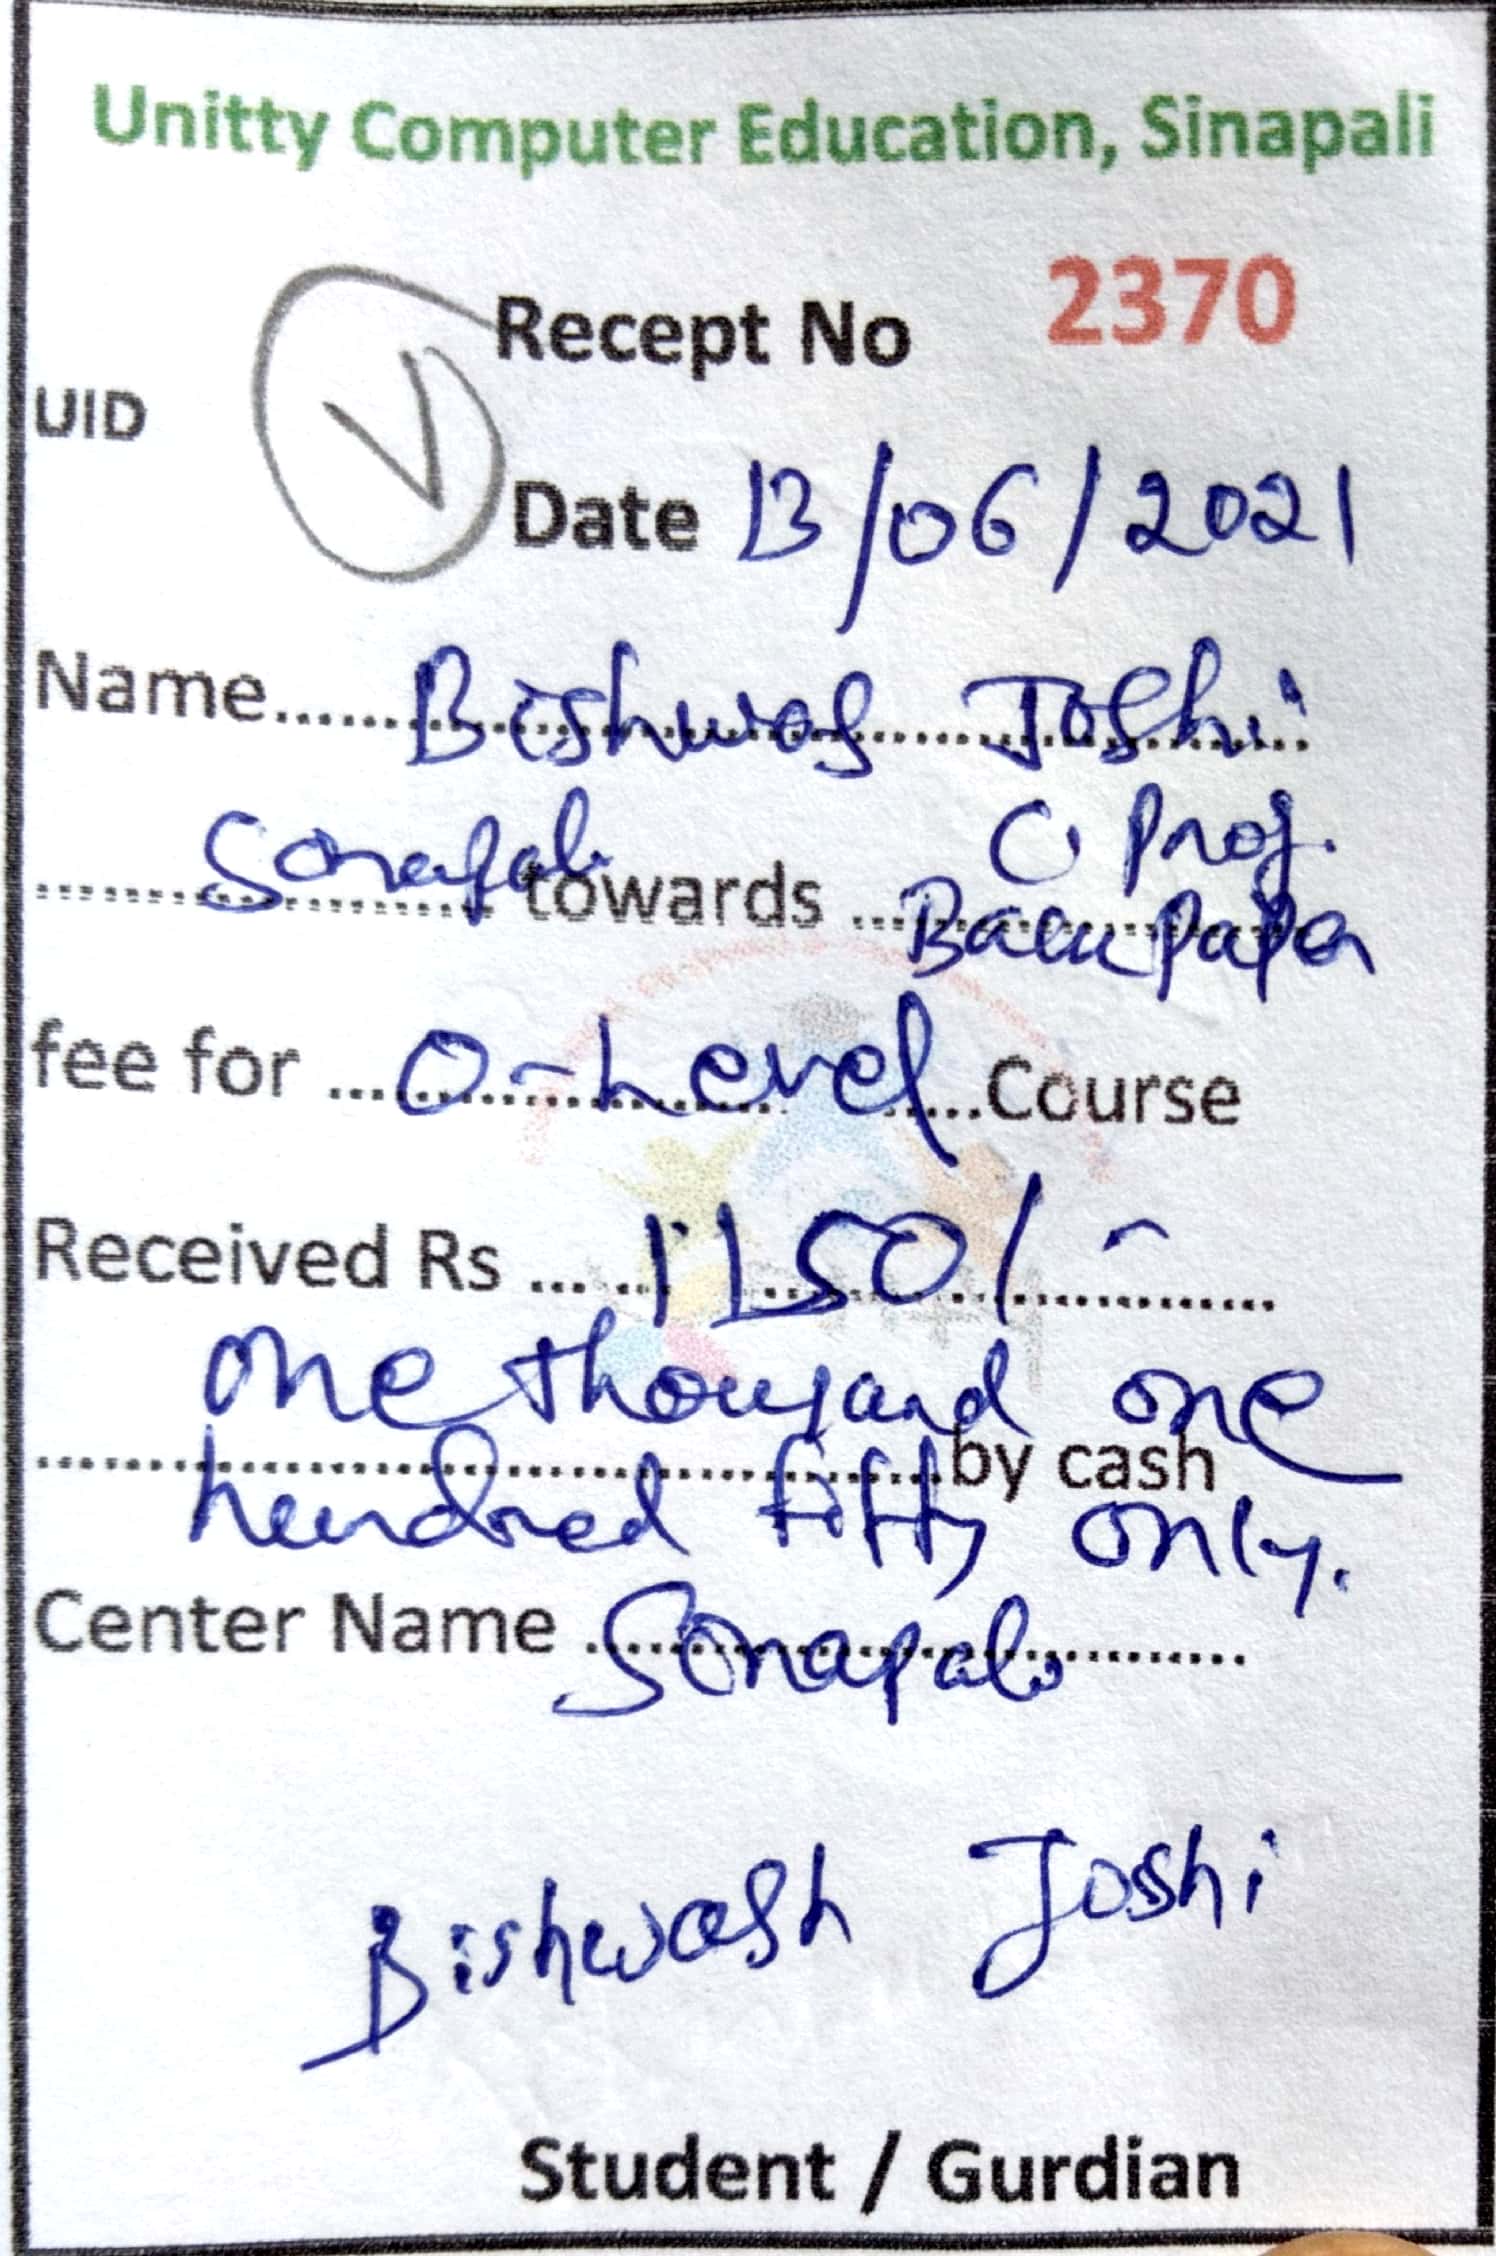 Unitty Computer Education, Sinapali
Recept No 2370
UID
Date 13/06/2021
Name.......Bishwas Joshi
Sinapali towards ... C Proj.
Back Paper
fee for ...O-Level...Course
Received Rs ... 1150/-
One thousand one
..........by cash
hundred fifty only.
Center Name ...Sinapali
Bishwash Joshi
Student / Gurdian